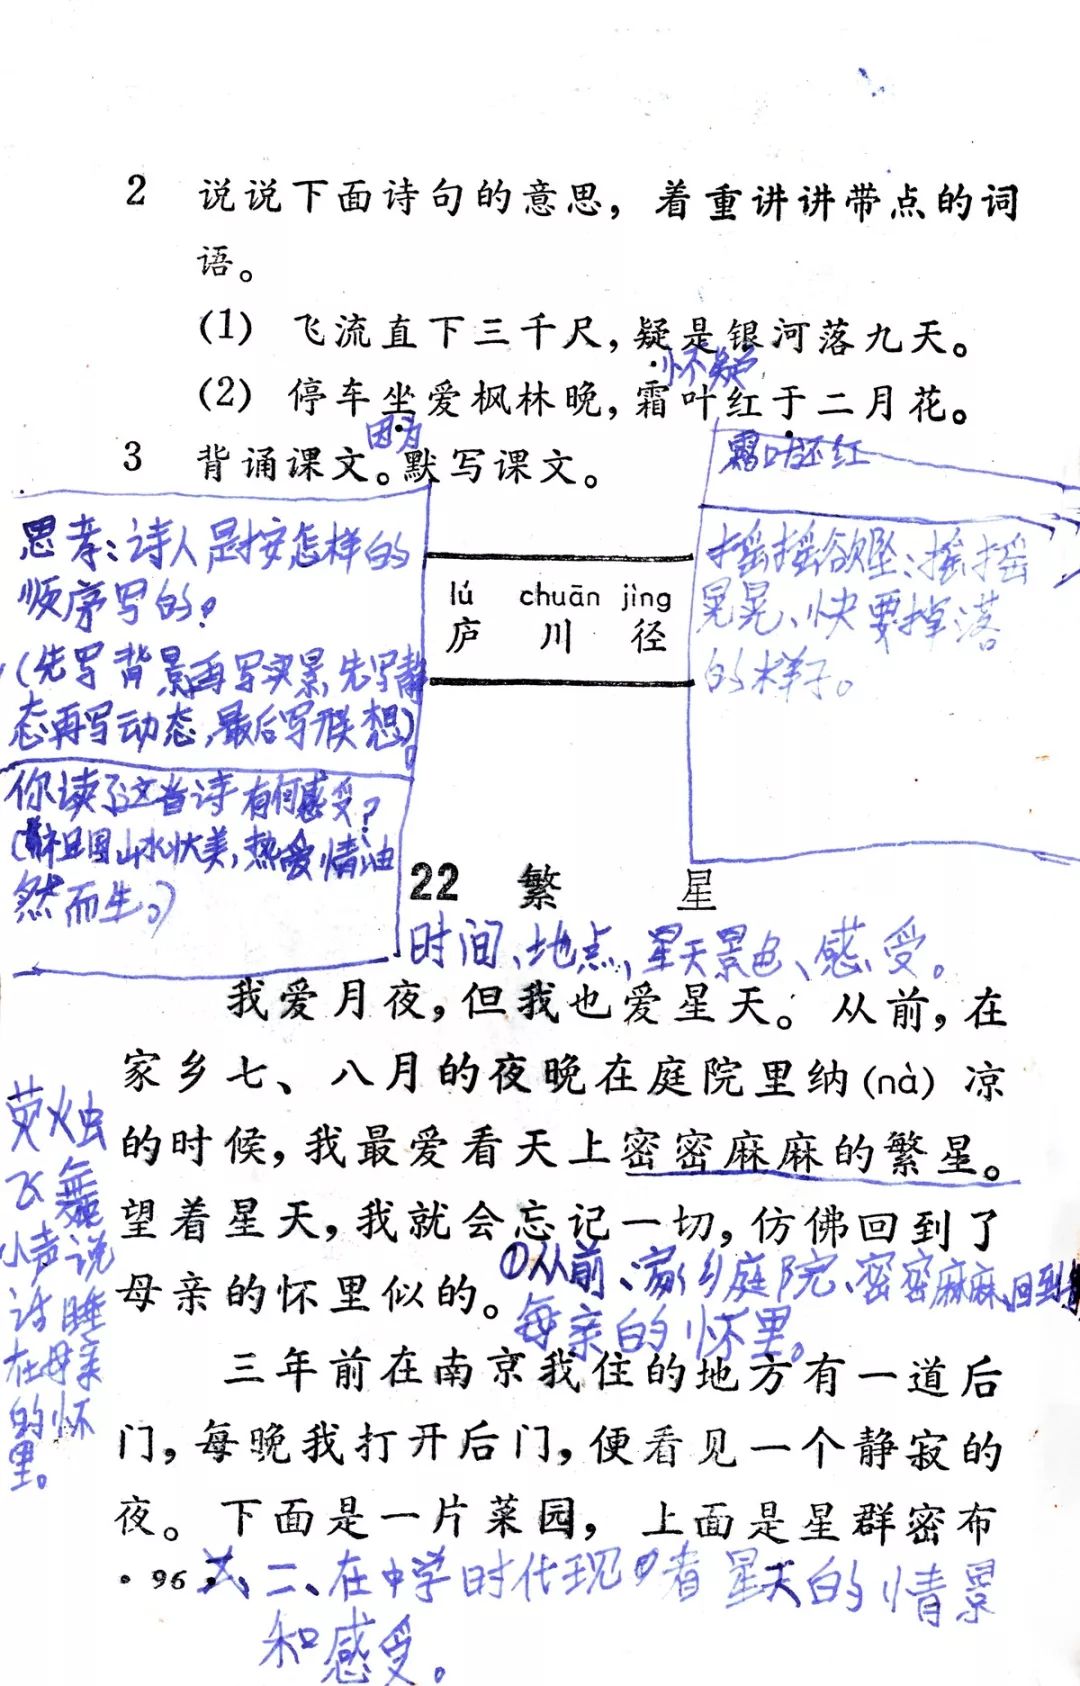 2 说说下面诗句的意思，着重讲讲带点的词
语。
(1) 飞流直下三千尺，疑是银河落九天。
怀疑
(2) 停车坐爱枫林晚，霜叶红于二月花。
因为
霜叶还红
3 背诵课文。默写课文。
思考：诗人是按怎样的
顺序写的？
(先写背景再写实景，先写静
态再写动态，最后写联想)。
你读了这首诗有何感受？
(祖国山水壮美，热爱情油
然而生。)
lú chuān jìng
庐 川 径
摇摇欲坠：摇摇
晃晃、快要掉落
的样子。
22 繁 星
时间、地点、星天景色、感受。
我爱月夜，但我也爱星天。从前，在
家乡七、八月的夜晚在庭院里纳(nà)凉
的时候，我最爱看天上密密麻麻的繁星。
望着星天，我就会忘记一切，仿佛回到了
母亲的怀里似的。
①从前、家乡庭院、密密麻麻、回到
母亲的怀里。
荧火虫
飞舞
小声说
话睡
在母亲
的怀
里。
三年前在南京我住的地方有一道后
门，每晚我打开后门，便看见一个静寂的
夜。下面是一片菜园，上面是星群密布
·96·
二、在中学时代现 看星天的情景
和感受。